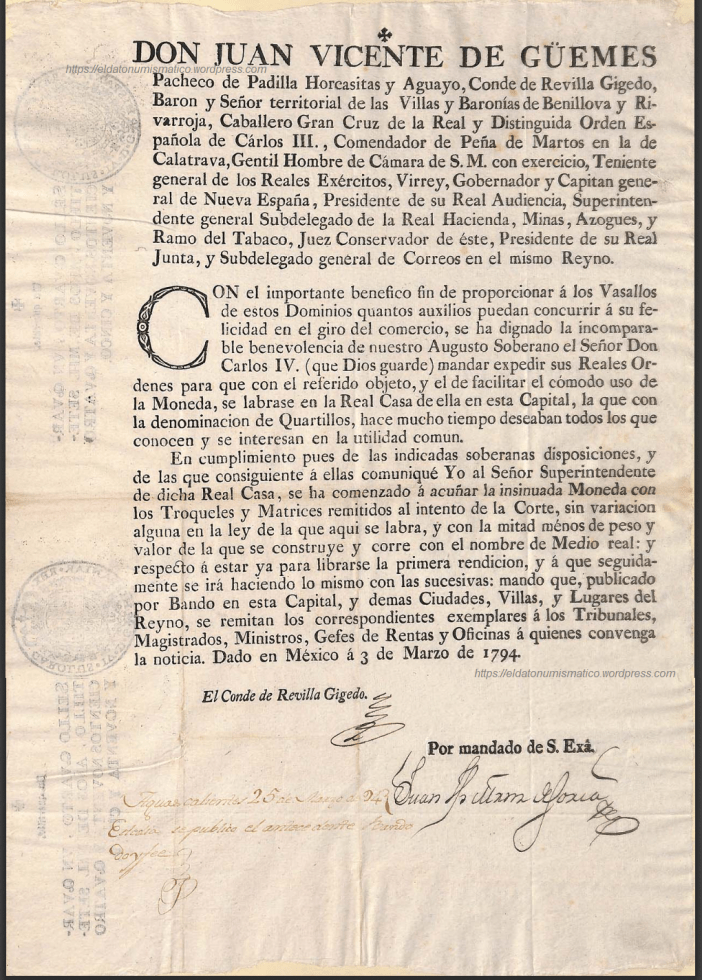 ✠
DON JUAN VICENTE DE GÜEMES
https://eldatonumismatico.wordpress.com
Pacheco de Padilla Horcasitas y Aguayo, Conde de Revilla Gigedo,
Baron y Señor territorial de las Villas y Baronías de Benillova y Ri-
varroja, Caballero Gran Cruz de la Real y Distinguida Orden Es-
pañola de Cárlos III., Comendador de Peña de Martos en la de
Calatrava, Gentil Hombre de Cámara de S. M. con exercicio, Teniente
general de los Reales Exércitos, Virrey, Gobernador y Capitan gene-
ral de Nueva España, Presidente de su Real Audiencia, Superinten-
dente general Subdelegado de la Real Hacienda, Minas, Azogues, y
Ramo del Tabaco, Juez Conservador de éste, Presidente de su Real
Junta, y Subdelegado general de Correos en el mismo Reyno.
CON el importante benefico fin de proporcionar á los Vasallos
de estos Dominios quantos auxilios puedan concurrir á su fe-
licidad en el giro del comercio, se ha dignado la incompara-
ble benevolencia de nuestro Augusto Soberano el Señor Don
Carlos IV. (que Dios guarde) mandar expedir sus Reales Or-
denes para que con el referido objeto, y el de facilitar el cómodo uso de
la Moneda, se labrase en la Real Casa de ella en esta Capital, la que con
la denominacion de Quartillos, hace mucho tiempo deseaban todos los que
conocen y se interesan en la utilidad comun.
En cumplimiento pues de las indicadas soberanas disposiciones, y
de las que consiguiente á ellas comuniqué Yo al Señor Superintendente
de dicha Real Casa, se ha comenzado á acuñar la insinuada Moneda con
los Troqueles y Matrices remitidos al intento de la Corte, sin variacion
alguna en la ley de la que aqui se labra, y con la mitad ménos de peso y
valor de la que se construye y corre con el nombre de Medio real: y
respecto á estar ya para librarse la primera rendicion, y á que seguida-
mente se irá haciendo lo mismo con las sucesivas: mando que, publicado
por Bando en esta Capital, y demas Ciudades, Villas, y Lugares del
Reyno, se remitan los correspondientes exemplares á los Tribunales,
Magistrados, Ministros, Gefes de Rentas y Oficinas á quienes convenga
la noticia. Dado en México á 3 de Marzo de 1794.
https://eldatonumismatico.wordpress.com
El Conde de Revilla Gigedo.
Por mandado de S. Exâ.
Aguascalientes 25 de Marzo de 94
se publicó el antecedente Bando
doy fee